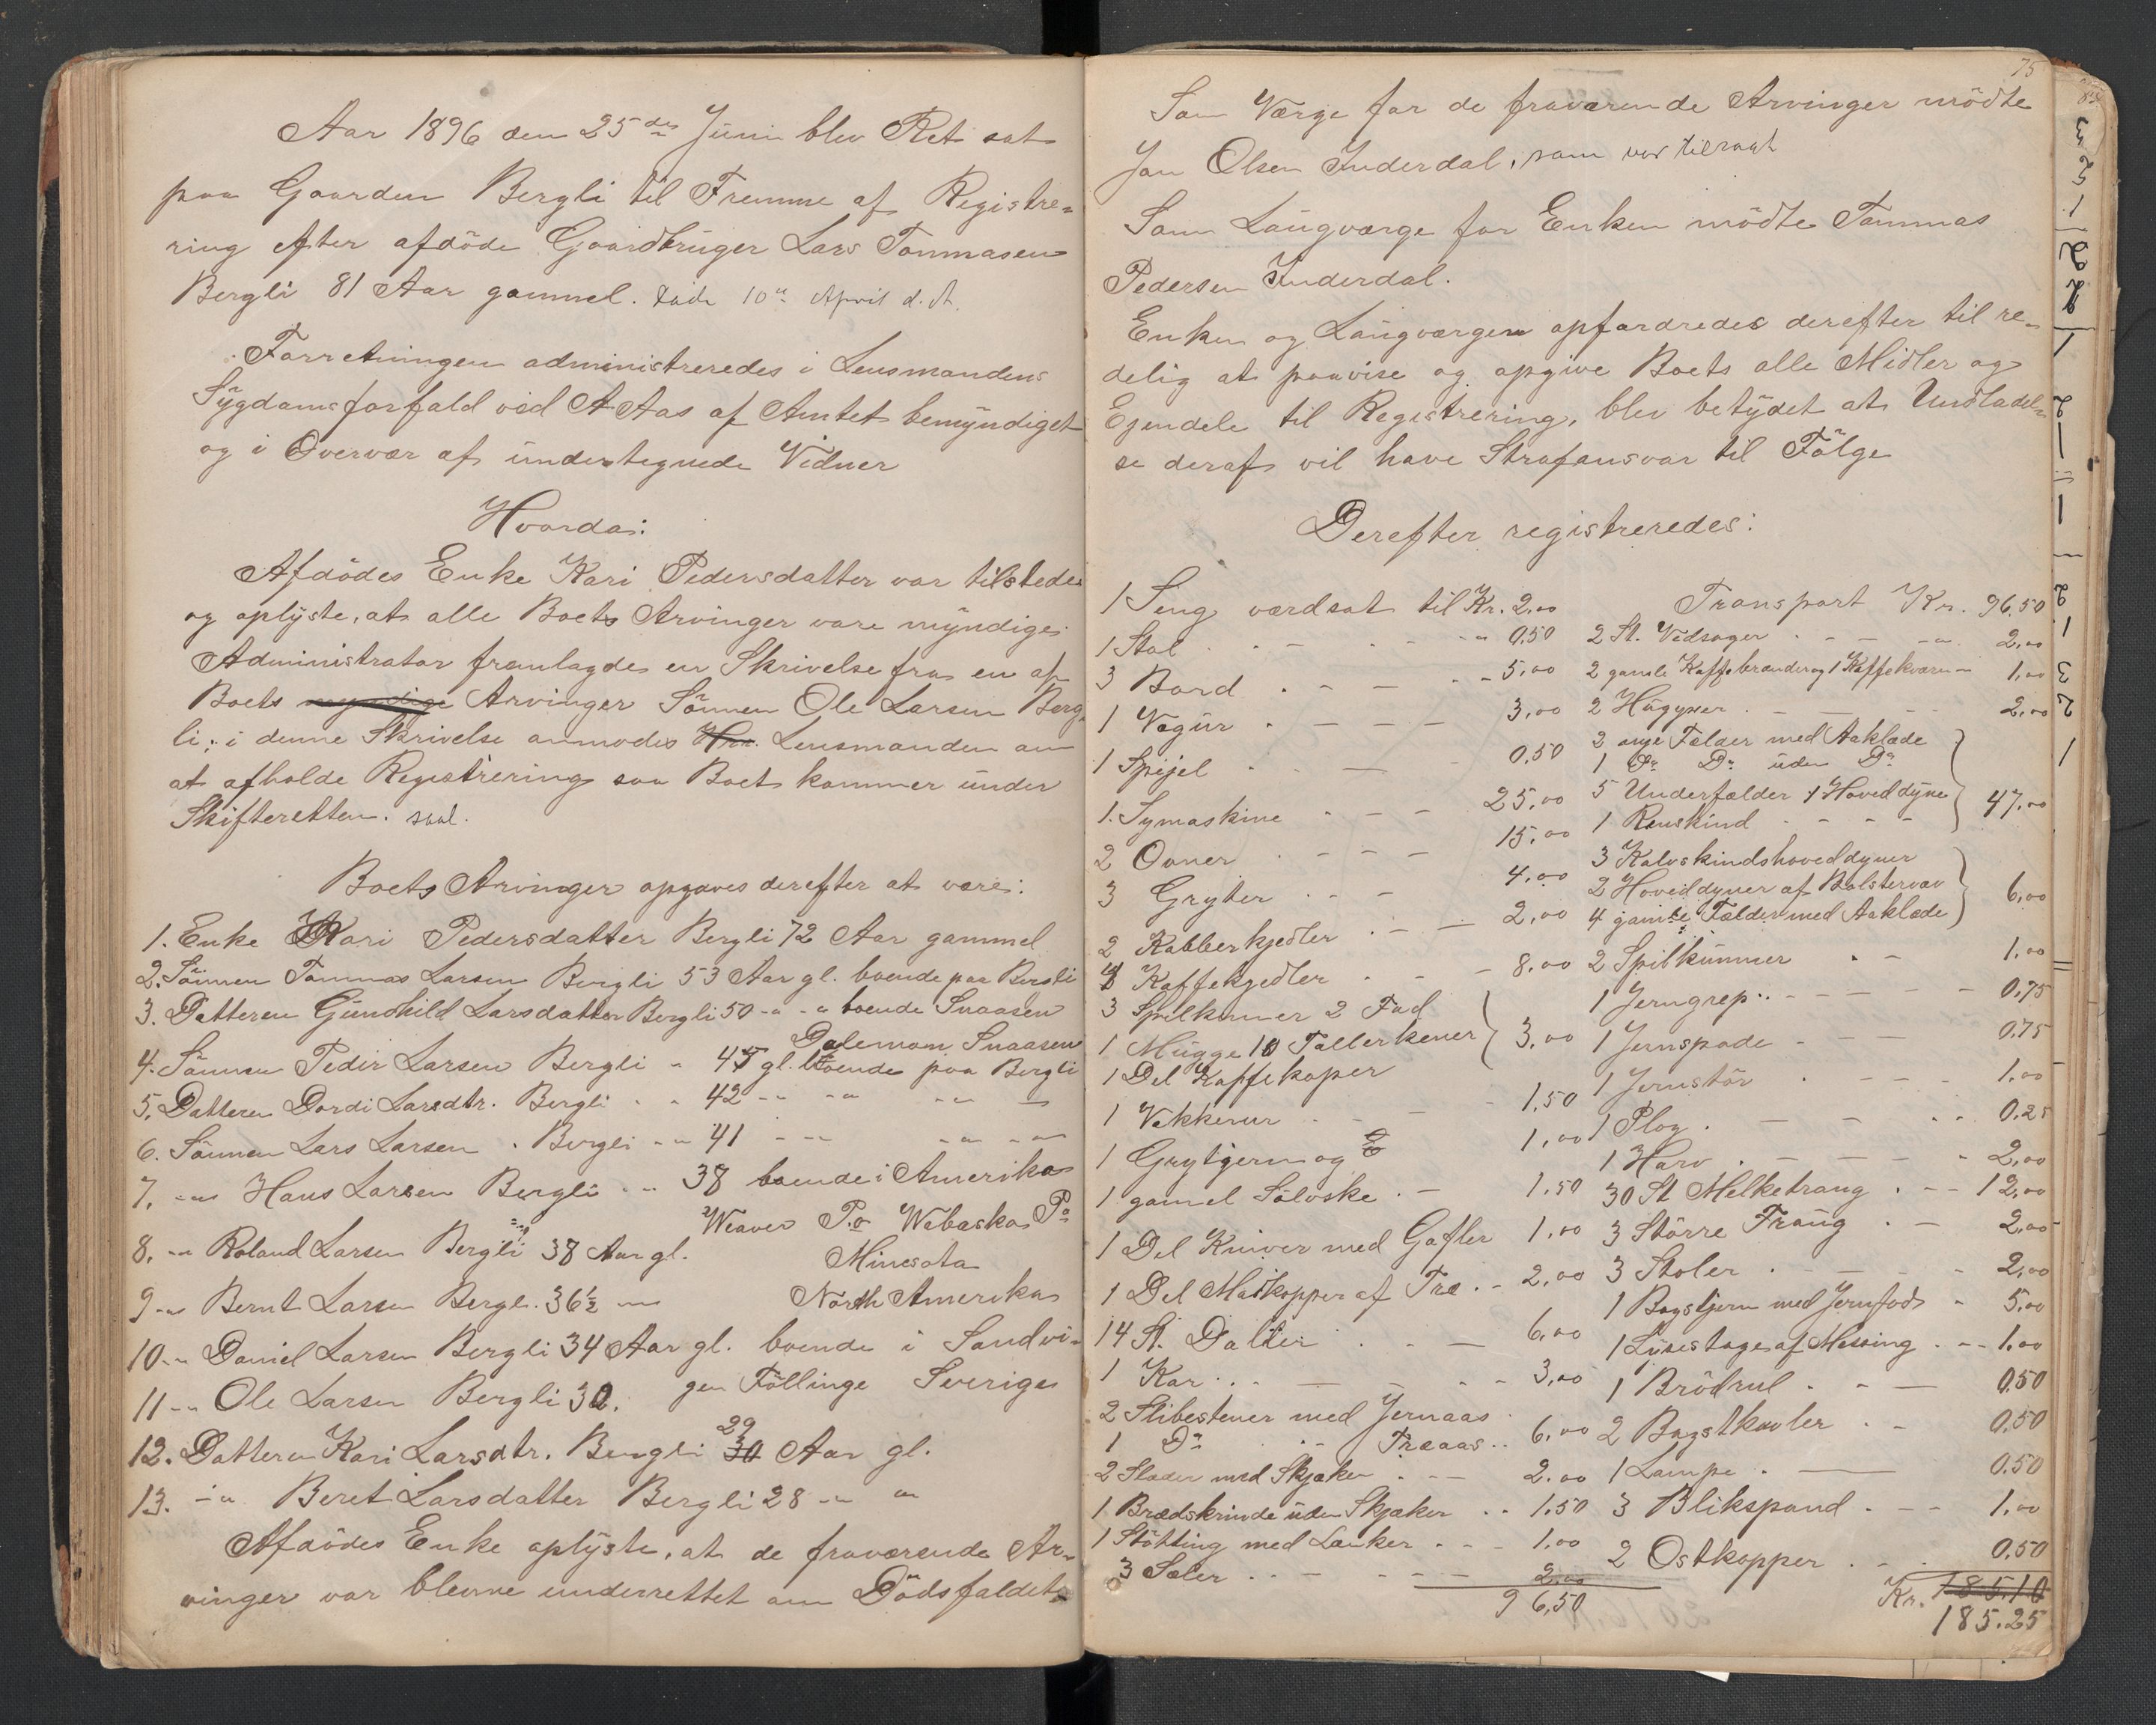 Aar 1896 den 25de Juni blev Ret sat
paa Gaarden Bergli til Fremme af Registre-
ring efter afdöde Gaardbruger Lars Tommasen
Bergli 81 Aar gammel. död 10de April d. A.
Forretningen administreredes i Lensmandens
Sygdomsforfald ved A Aas af Amtet bemyndiget
og i Overvær af undertegnede Vidner
Hvorda:
Afdödes Enke Kari Pedersdatter var tilstede
og oplyste, at alle Boets Arvinger vare myndige.
Administrator fremlagde en Skrivelse fra en af
Boets myndige Arvinger Sönnen Ole Larsen Berg-
li; i denne Skrivelse anmodes Hr. Lensmanden om
at afholde Registrering saa Boet kommer under
Skifteretten.
Boets Arvinger opgaves derefter at være:
1. Enke Kari Pedersdatter Bergli 72 Aar gammel
2. Sönnen Tommas Larsen Bergli 53 Aar gl. boende paa Bergli
3. Datteren Gunhild Larsdatter Bergli 50 -"- " boende Snaasen
Dalemom Snaasen
4. Sönnen Peder Larsen Bergli - 45 gl. boende paa Bergli
5. Datteren Dordi Larsdtr. Bergli - - 42 -"- -"- -"-
6. Sönnen Lars Larsen - Bergli -"- 41 -"- -"- -"-
7. -"- Hans Larsen Bergli -"- 38 boende i Amerika
Weaver P.o Wabaska Po
8. -"- Roland Larsen Bergli 38 Aar gl.
Minesota
9 -"- Bernt Larsen Bergli. 36½ -"-
North Amerika
10 -"- Daniel Larsen Bergli 34 Aar gl. boende i Sandvi-
11 -"- Ole Larsen Bergli 30. gen Föllinge Sverige
29
12. Datteren Kari Larsdtr. Bergli 30 Aar gl.
13. -"- Beret Larsdatter Bergli 28 -"- "
Afdödes Enke oplyste, at de fraværende Ar-
vinger var blevne underrettet om Dödsfaldet.
75
Som Værge for de fraværende Arvinger mödte
Jon Olsen Inderdal, som var tilsagt
Som Laugværge for Enken mödte Tommas
Pedersen Inderdal.
Enken og Laugværgen opfordredes derefter til re-
delig at paavise og opgive Boets alle Midler og
Ejendele til Registrering, blev betydet at Undladel-
se deraf vil have Strafansvar til Fölge
Derefter registreredes:
1 Seng værdsat til Kr. 2,00
1 Stol - - - - 0,50
3 Bord - - - - 5,00
1 Vægur - - - - 3,00
1 Spejel - - - 0,50
1. Symaskine - - - 25,00
2 Ovner - - - - 15,00
3 Gryter - - - 4,00
2 Kabberkjedler - - - 2,00
4 Kaffekjedler - - - 8,00
3 Spilkumer 2 Fad
1 Mugge 10 Tallerkener } 3,00
1 Del Kaffekoper
1 Vekkerur - - - 1,50
1 Grytjern og 1,00
1 gamel Solvske - - 1,50
1 Del Kniver med Gafler 1,00
1 Del Matkopper af Træ - - 2,00
14 St. Dalter - - - 6,00
1 Kar - - - - - 3,00
2 Slibestener med Jernaas
1 Do - - Træaas - - 6,00
2 Slæder med Skjæker - - - 2.00
1 Brædskrinde uden Skjæker - - 1.50
1 Stötting med Lænker - - - 1.00
3 Sæler - - - - - 2,00
96,50
Transport Kr. 96.50
2 St. Vedsager - - - - 2,00
2 gamle Kaffebrænder og 1 Kaffekværn - 1,00
2 Hugyxer - - - - 2,00
2 nye Fælder med Aaklæde
1 Do Do uden Do
5 Underfælder 1 Hoveddyne } 47,00
1 Renskind - - - -
3 Kalvskindshoveddyner
2 Hoveddyner af Bolstervær } 6,00
4 gamle Fælder med Aaklæde
2 Spilkummer - - 1,00
1 Jerngrep - - - - - 0,75
1 Jernspade - - - - 0,75
1 Jernstör - - - - 1,00
1 Plog - - - - - 0.25
1 Harv - - - - - 2,00
30 St Melketraug - - - 12,00
3 Större Traug - - 2,00
3 Stoler - - - - 2,00
1 Bagstjern med Jernfod - 5.00
1 Lysestage af Messing - - - 1.00
1 Brödrul - - - 0,50
2 Bagstkavler - - 0,50
1 Lampe - - 0.50
3 Blikspand - - - 1,00
2 Ostkopper - - - 0,50
Kr. 185.10
185.25